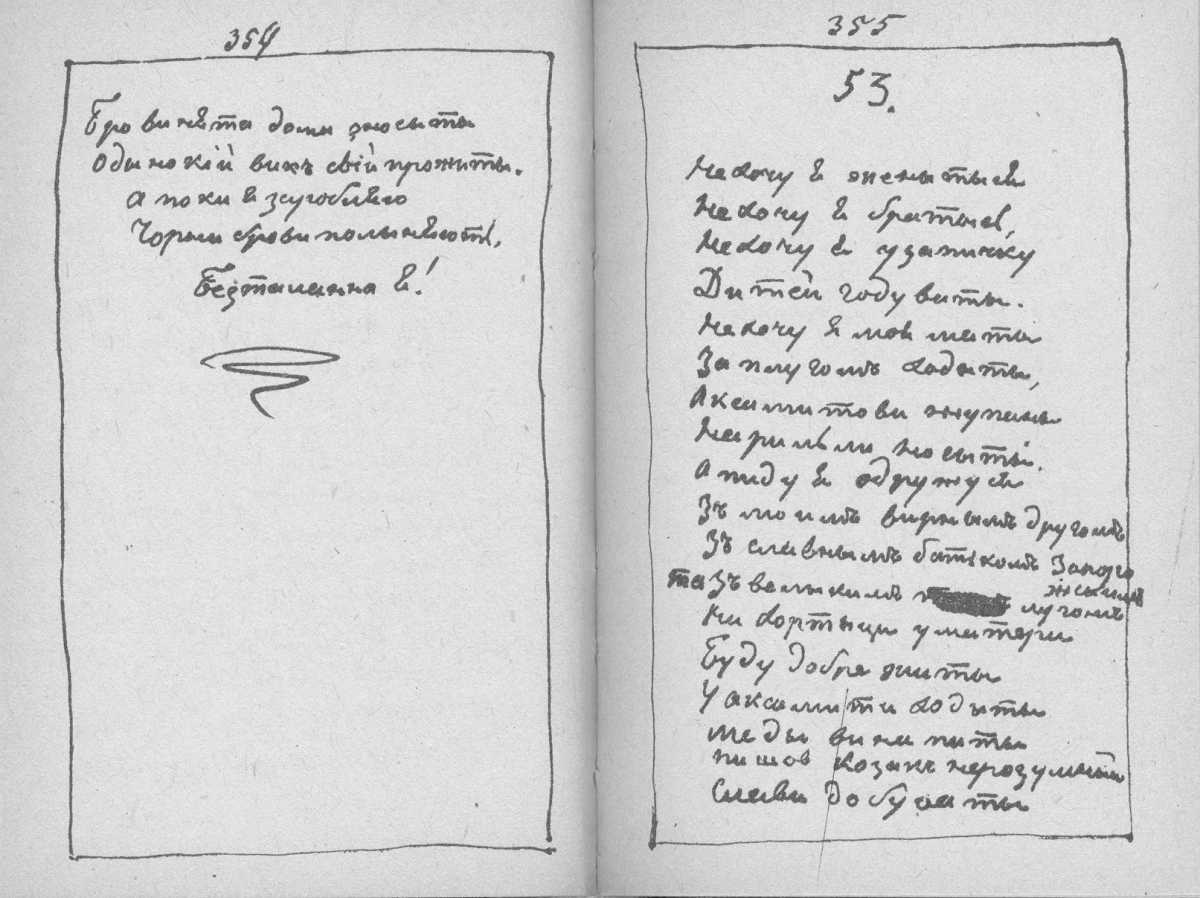 354
Бровинята дома зносыты
Одынокій викъ свій прожиты.
А поки я заробляю
Чорни брови полыняють,
Безталанна я!
355
53.
Не хочу я женытыся
Не хочу я братыся,
Не хочу я у запичку
Дитей годуваты.
Не хочу я моя маты
За плугомъ ходыты,
Аксамитови жупаны
На рильли носыты.
А пиду я одружуся
Зъ моимъ вирнымъ другомъ
Зъ славнымъ батькомъ запорозькымъ
та Зъ велыкимъ лугомъ
На хортыци у матери
Буду добре житы
У аксамити ходыты
меды вина питы
пишов козакъ нерозумный
Славы добуваты